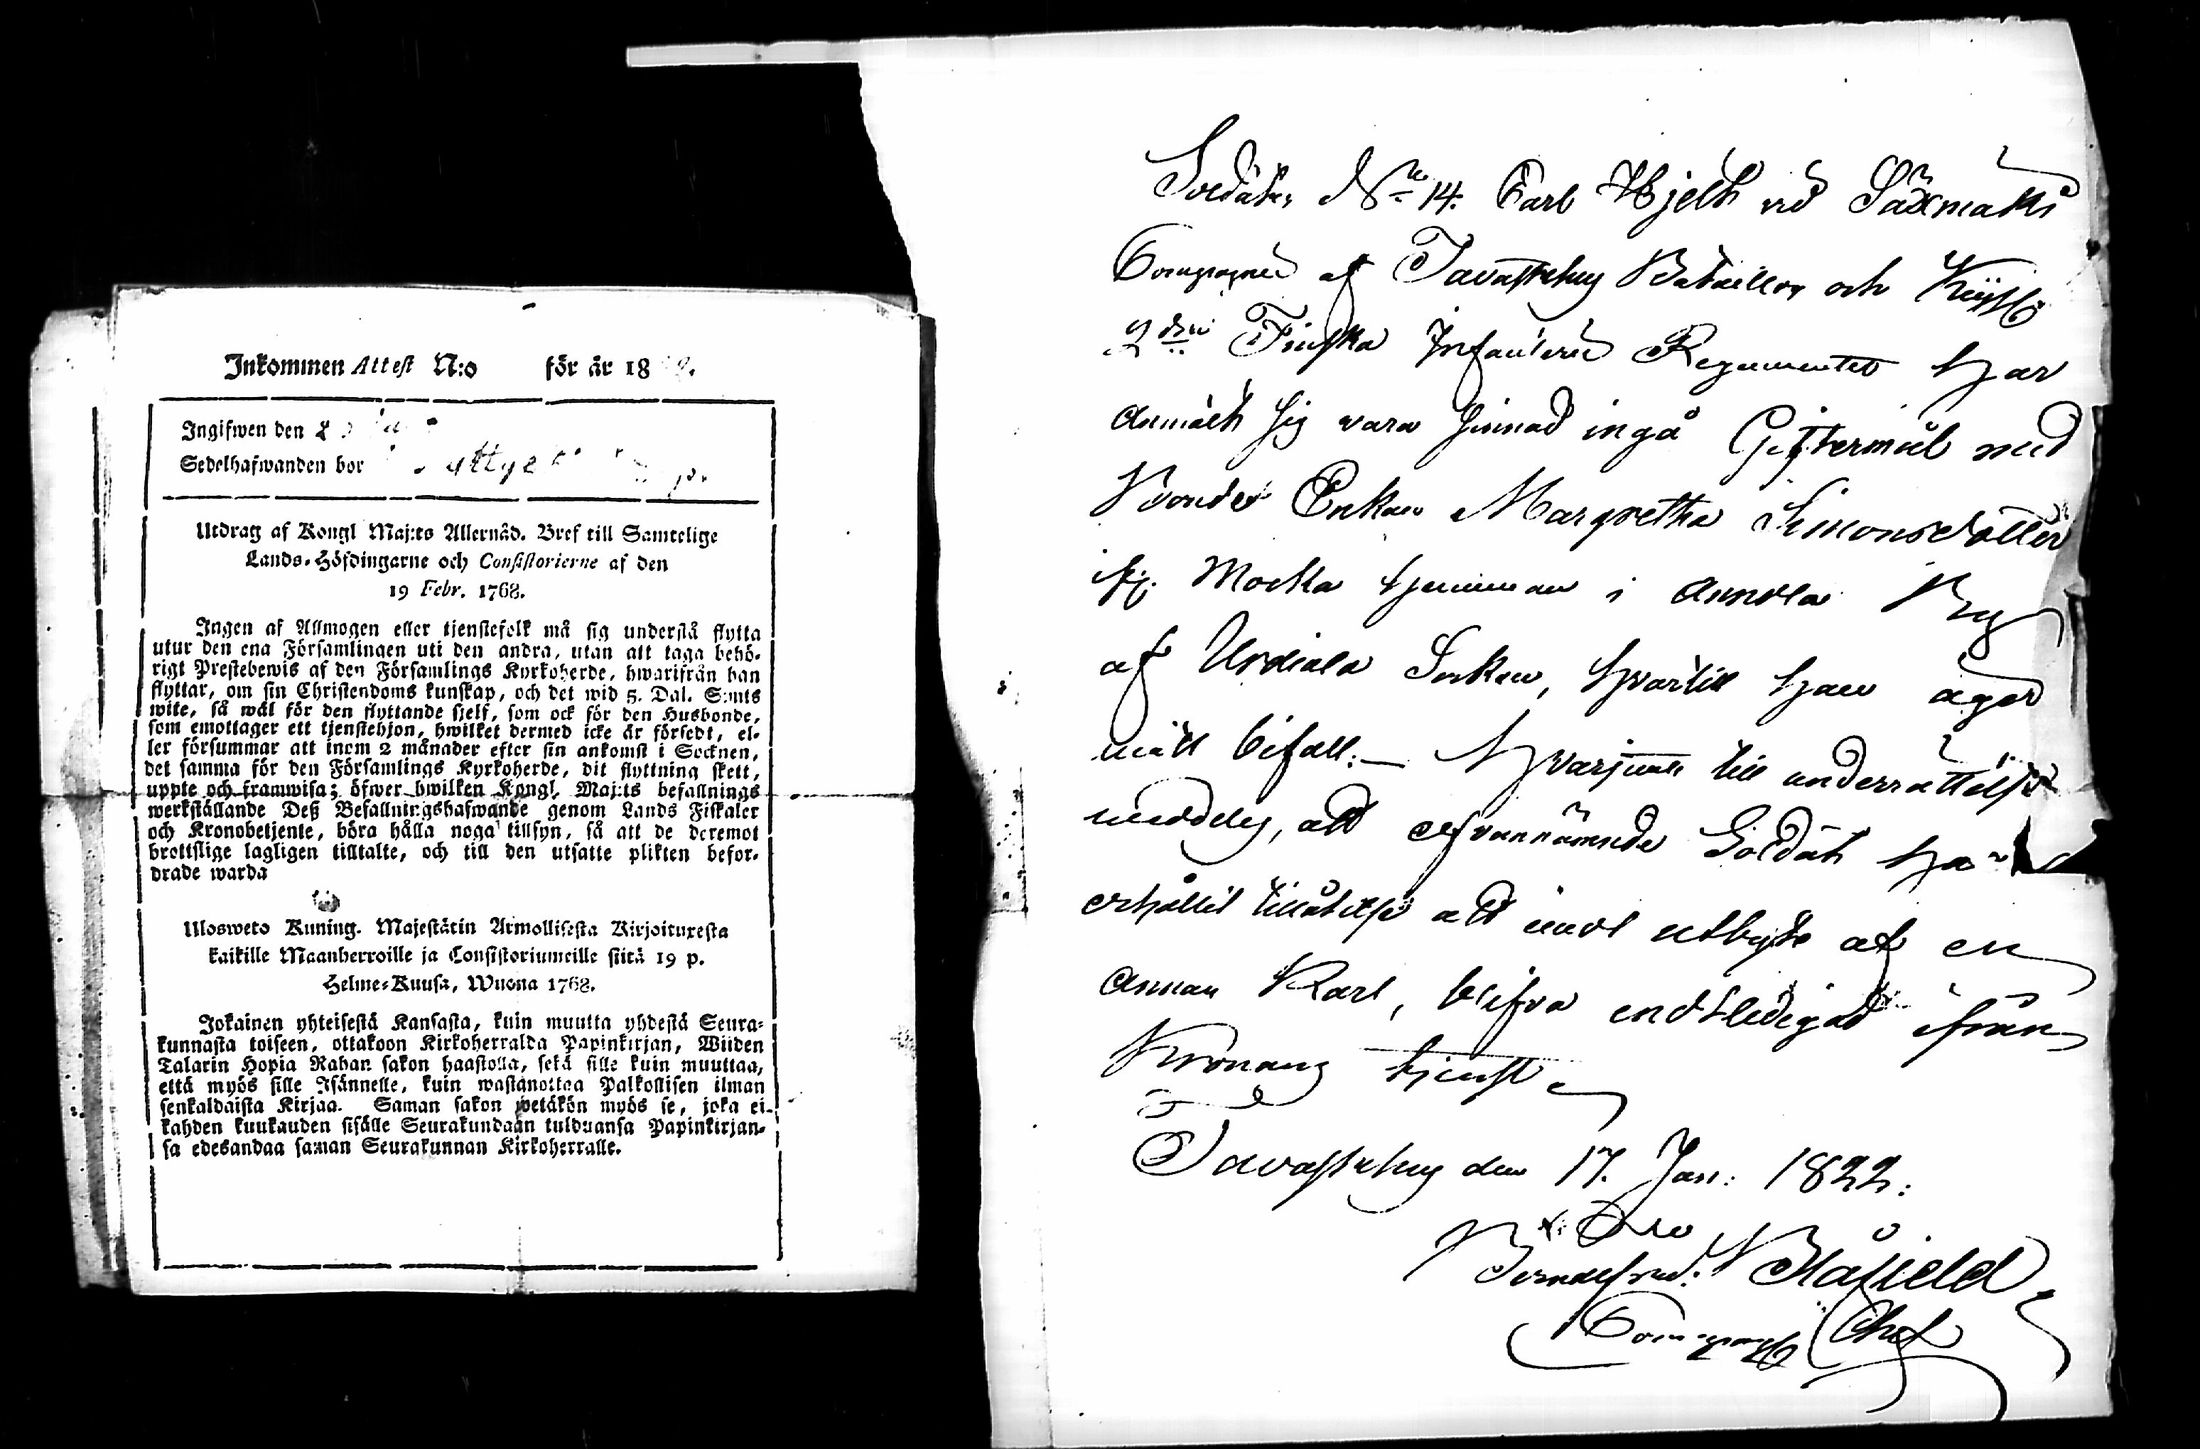 Inkommen Attest N:o för år 18
Ingifwen den
Sedelhafwanden bor
Utdrag af Kongl Maj:ts Allernåd. Bref till Samtelige
Lands-Höfdingarne och Consistorierne af den
19 Febr. 1768.
Ingen af Allmogen eller tjenstefolk må sig understå flytta
utur den ena Församlingen uti den andra, utan att taga behö-
rigt Prestebewis af den Församlings Kyrkoherde, hwarifrån han
flyttar, om sin Christendoms kunskap, och det wid 5. Dal. S:mts
wite, så wäl för den flyttande sjelf, som ock för den Husbonde,
som emottager ett tjenstehjon, hwilket dermed icke är försedt, el-
ler försummar att inom 2 månader efter sin ankomst i Socknen,
det samma för den Församlings Kyrkoherde, dit flyttning skett,
uppte och framwisa; öfwer hwilken Kongl. Maj:ts befallnings
werkställande Deß Befallningshafwande genom Lands Fiskaler
och Kronobetjente, böra hålla noga tillsyn, så att de deremot
brottslige lagligen tilltalte, och till den utsatte plikten befor-
drade warda
Ulosweto Kuning. Majestätin Armollisesta Kirjoituxesta
kaikille Maanherroille ja Consistoriumeille siitä 19 p.
Helme-Kuusa, Wuona 1768.
Jokainen yhteisestä Kansasta, kuin muutta yhdestä Seura-
kunnasta toiseen, ottakoon Kirkoherralda Papinkirjan, Wiiden
Talarin Hopia Rahan sakon haastolla, sekä sille kuin muuttaa,
että myös sille Isännelle, kuin wastanottaa Palkollisen ilman
senkaldaista Kirjaa. Saman sakon wetäkön myös se, joka ei
kahden kuukauden sisälle Seurakundaan tulduansa Papinkirjan-
sa edesandaa saman Seurakunnan Kirkoherralle.
Soldaten No 14. Carl Hjelt vid Säxmäki
Compagnie af Tavastehus Bataillon och
2dra Finska Infanterie Regementet har
anmält sig vara sinnad ingå Giftermål med
Bonde Enkan Margretha Simonsdotter
ifr. Mocka hemman i Annola By
af Urdiala Socken, hvartill han äger
mitt bifall. — Hvarjemte till underrättelse
meddeles, att ofvannämnde Soldat har
erhållit tillåtelse att emot utbyte af en
annan Karl, blifva endtledigad ifrån
Kronans tjenst
Tavastehus den 17. Jan: 1822:
Blåfield
Compagnie Chef